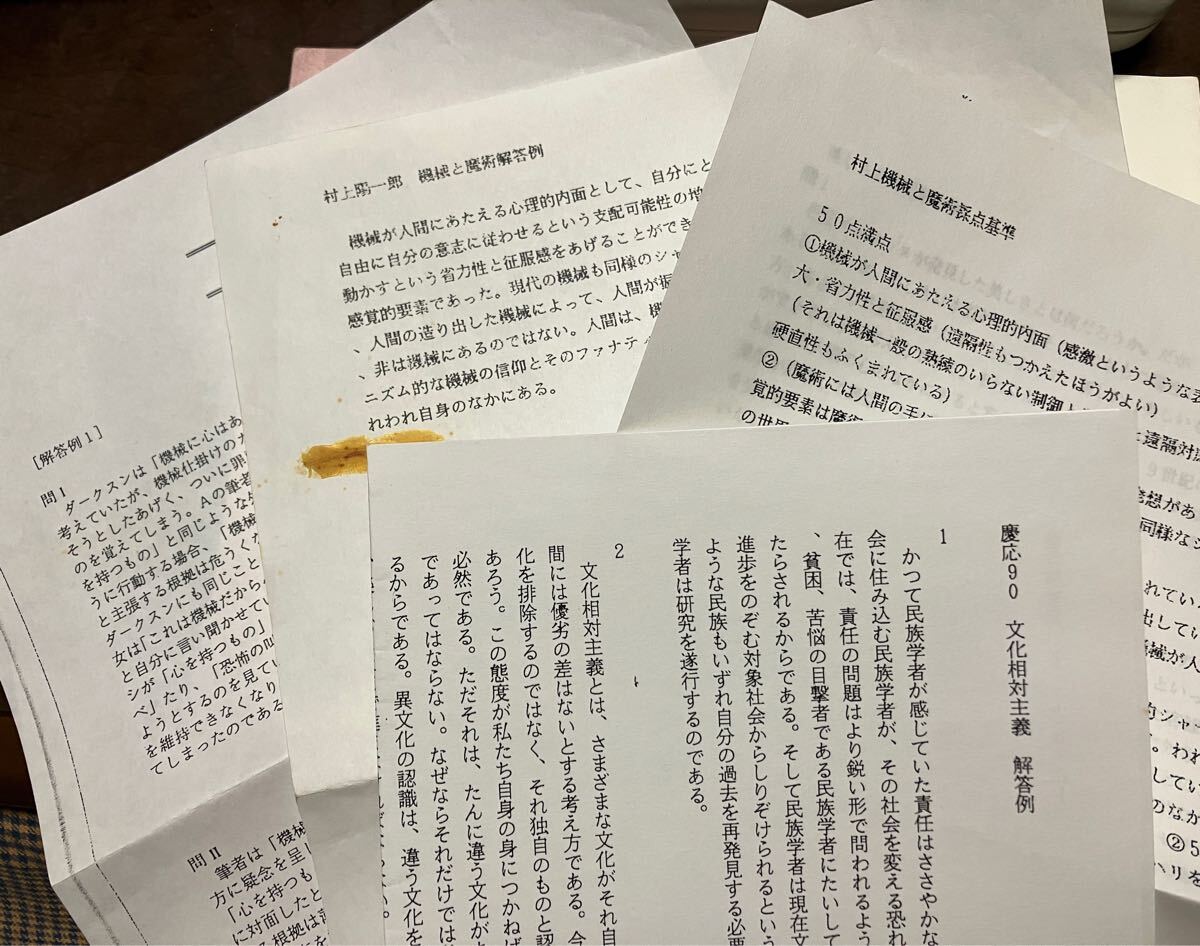 村上陽一郎 機械と魔術解答例
機械が人間にあたえる心理的内面として、自分にと
自由に自分の意志に従わせるという支配可能性の増
動かすという省力性と征服感をあげることができ
感覚的要素であった。現代の機械も同様のシャ
、人間の造り出した機械によって、人間が振
、非は機械にあるのではない。人間は、機
ニズム的な機械の信仰とそのファナティ
れわれ自身のなかにある。
村上機械と魔術採点基準
50点満点
①機械が人間にあたえる心理的内面(感激というような表
大・省力性と征服感(遠隔性もつかえたほうがよい)
(それは機械一般の熟練のいらない制御と
硬直性もふくまれている)
②(魔術には人間の手に
と遠隔対
覚的要素は魔術
の世界
発想があ
同様なシ
れてい
出して
機械が人
的シャー
。われ
してい
のなか
②5
ハリを
[解答例1]
問I
ダークスンは「機械に心はあ
考えていたが、機械仕掛けの
そうとしたあげく、ついに罪
のを覚えてしまう。Aの筆者
を持つもの」と同じような
うに行動する場合、「機械
と主張する根拠は危うくな
ダークスンにも同じこと
女は「これは機械だから
と自分に言い聞かせてい
シが「心を持つもの」
べ」たり、「恐怖の
ようとするのを見てい
を維持できなくなり
てしまったのである
問II
筆者は「機械
方に疑念を呈し
「心を持つも
に対面したと
る根拠は
慶応90 文化相対主義 解答例
1
かつて民族学者が感じていた責任はささやかな
会に住み込む民族学者が、その社会を変える恐れ
在では、責任の問題はより鋭い形で問われるよう
、貧困、苦悩の目撃者である民族学者にたいして
たらされるからである。そして民族学者は現在文
進歩をのぞむ対象社会からしりぞけられるという
ような民族もいずれ自分の過去を再発見する必要
学者は研究を遂行するのである。
2
文化相対主義とは、さまざまな文化がそれ自
間には優劣の差はないとする考え方である。今
化を排除するのではなく、それ独自のものと認
あろう。この態度が私たち自身の身につかねば
必然である。ただそれは、たんに違う文化が
であってはならない。なぜならそれだけでは
るからである。異文化の認識は、違う文化を